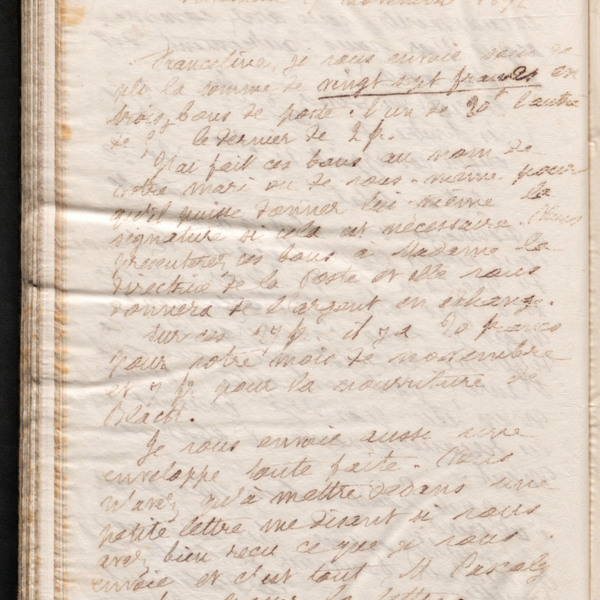 Franceline, je vous envoie sous ce
pli la somme de vingt sept francs en
trois bons de poste. l'un de 20f l'autre
de 5f le dernier de 2 f.
J'ai fait ces bons au nom de
votre mari ou de vous-même pour
qu'il puisse donner lui-même la
signature si cela est nécessaire. Vous
présenterez ces bons à Madame la
directrice de la Poste et elle vous
donnera de l'argent en échange.
Sur ces 27 f. il y a 20 francs
pour votre mois de novembre
et 7 f pour la nourriture de
Black.
Je vous envoie aussi une
enveloppe toute faite. Vous
n'avez qu'à mettre dedans une
petite lettre me disant si vous
avez bien reçu ce que je vous
envoie et c'est tout. M Pascaly
la lettre